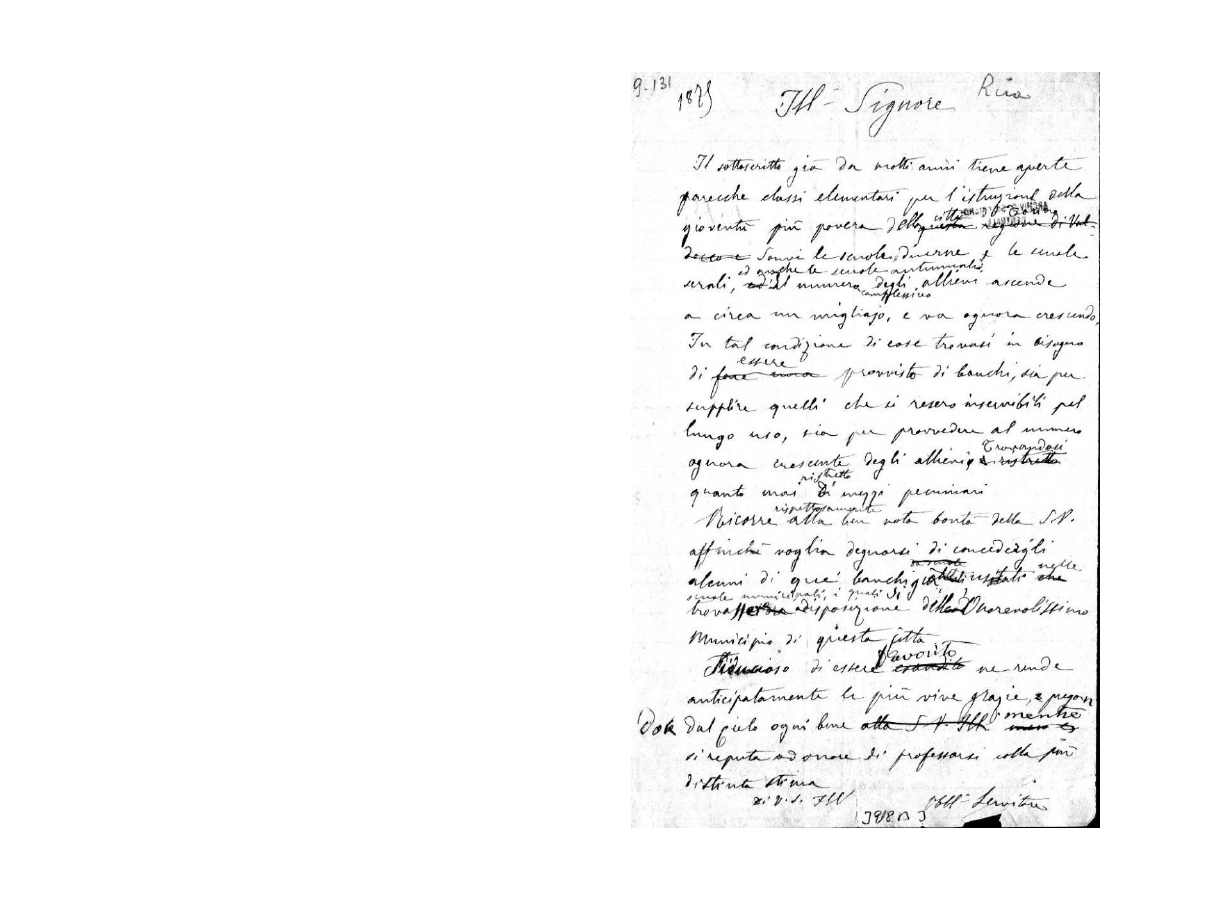 9-131
1875 Ill- Signore Rica
Il sottoscritto già da molti anni tiene aperte
parecchie classi elementari per l'istruzione della
città di Torino
gioventù più povera della questa regione di Val-
docco e Sonvi le scuole diurne, e le scuole
ed anche le scuole autunnali
serali, ed il numero degli allievi ascende
complessivo
a circa un migliajo, e va ognora crescendo,
In tal condizione di cose trovasi in bisogno
essere
di fare provvisto di banchi, sia per
supplire quelli che si resero inservibili pel
lungo uso, sia per provvedere al numero
Trovandosi
ognora crescente degli allievi, è ristretto
ristretto
quanto mai di mezzi pecuniari
rispettosamente
Ricorre alla ben nota bontà della S.V.
affinchè voglia degnarsi di concedergli
da scuola
alcuni di que' banchi già usitati che nelle
scuole municipali, i quali si
trovassero a disposizione dell'Onorevolissimo
Municipio di questa città
favorito
Fiducioso di essere esaudito ne rende
anticipatamente le più vive grazie, e pregon
dole dal cielo ogni bene alla S.V. Ill. mentre
si reputa ad onore di professarsi colla più
distinta stima
Di V.S. Ill Obbl- Servitore